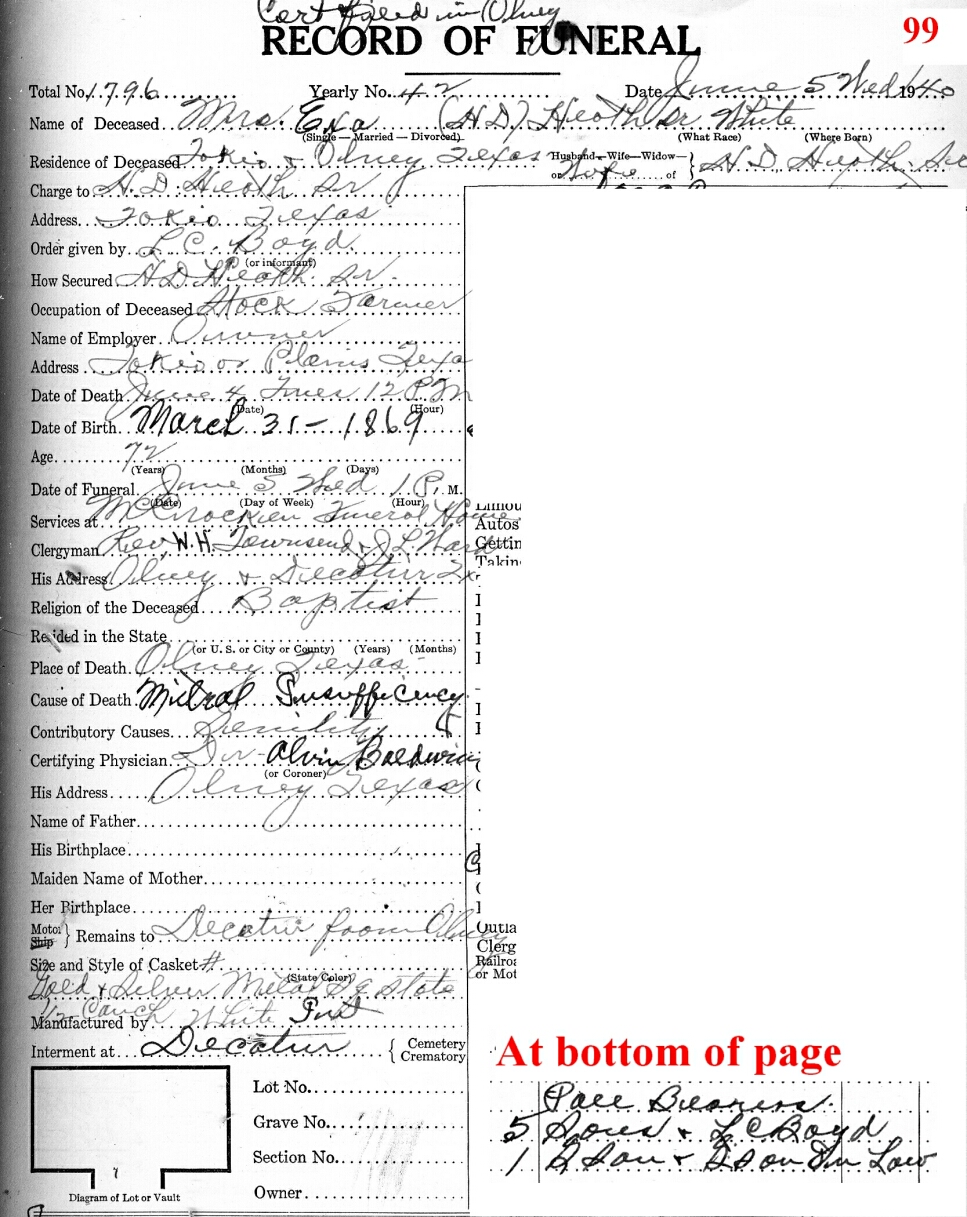 Cert filed in Olney
RECORD OF FUNERAL
99
Total No. 1796 Yearly No. 42 Date June 5 Wed 1940
Name of Deceased Mrs. Exa (H D) Heath Sr White
(Single — Married — Divorced) (What Race) (Where Born)
Residence of Deceased Tokio & Olney Texas Husband—Wife—Widow— or Wife of } H D Heath Sr
Charge to H. D. Heath Sr
Address Tokio Texas
Order given by L. C. Boyd
(or informant)
How Secured H D Heath Sr.
Occupation of Deceased Stock Farmer
Name of Employer Owner
Address Tokio or Plains Texa
Date of Death June 4 Tues 12 P.M
(Date) (Hour)
Date of Birth March 31 - 1869
Age 72
(Years) (Months) (Days)
Date of Funeral June 5 Wed 1 P. M.
(Date) (Day of Week) (Hour)
Services at Funeral Home
Clergyman Rev W.H. Townsend & J L Ward
His Address Olney & Decatur Tx
Religion of the Deceased Baptist
Resided in the State
(or U. S. or City or County) (Years) (Months)
Place of Death Olney Texas
Cause of Death Mitral Insufficency
Contributory Causes Senility
Certifying Physician Dr Alvin Baldwin
(or Coroner)
His Address Olney Texas
Name of Father
His Birthplace
Maiden Name of Mother
Her Birthplace
Motor Ship } Remains to Decatur from Olney
Size and Style of Casket #
(State Color)
Gold & Silver Metal Sq State
1/2 Couch White Int
Manufactured by
Interment at Decatur { Cemetery Crematory
Lot No.
Grave No.
Section No.
Owner
Diagram of Lot or Vault
Limou
Autos
Gettin
Takin
Outla
Clerg
Railroa
or Mot
At bottom of page
Pall Bearers
5 Sons & L C Boyd
1 G Son & G Son In Law